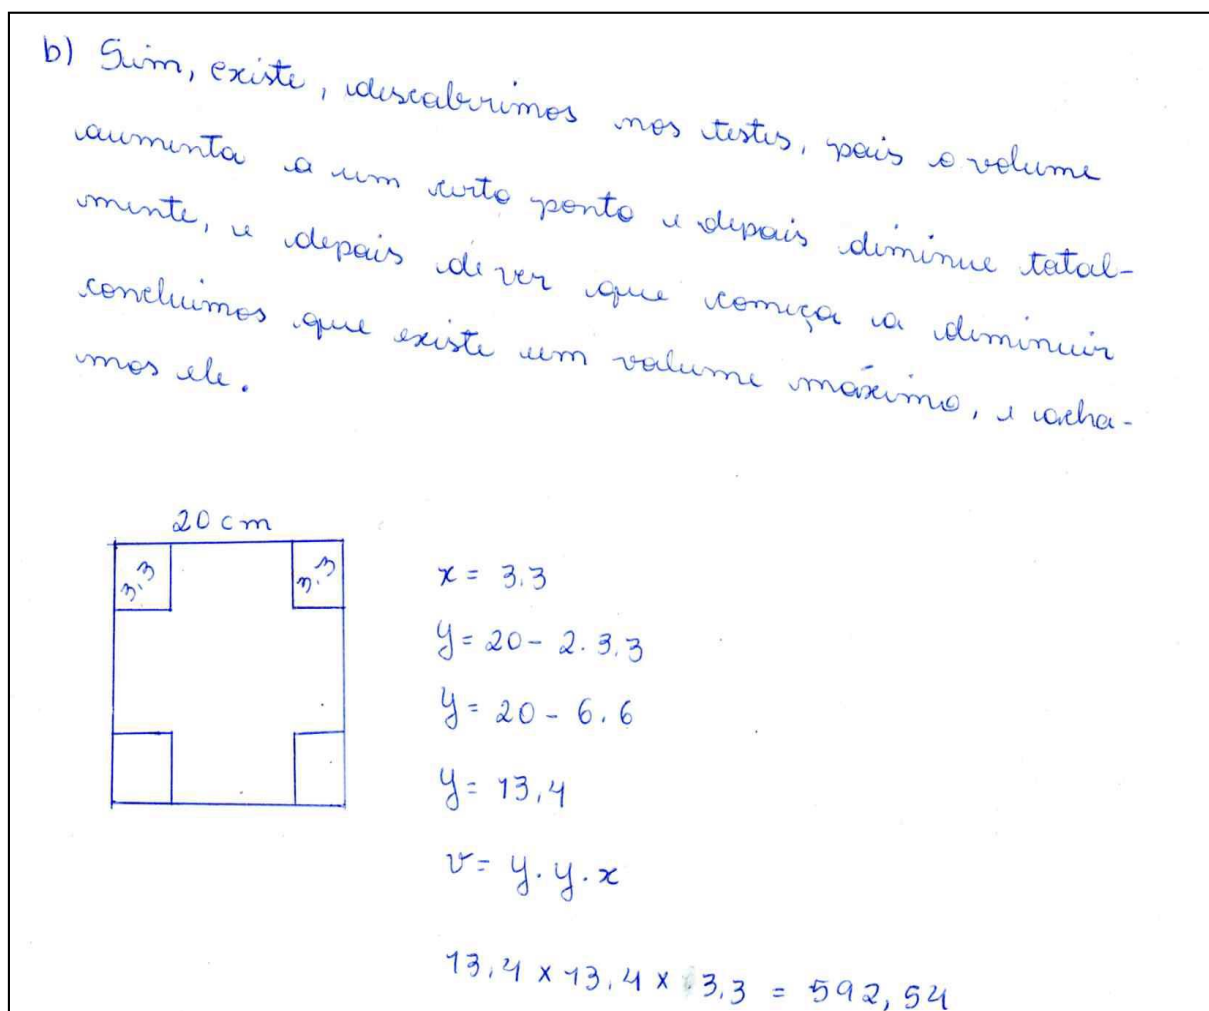 b) Sim, existe, descobrimos nos testes, pois o volume
aumenta a um certo ponto e depois diminue total-
mente, e depois de ver que começa a diminuir
concluimos que existe um volume máximo, e acha-
mos ele.
20 cm
3,3 3,3
x = 3.3
y = 20 - 2. 3,3
y = 20 - 6.6
y = 13,4
v = y . y . x
13,4 x 13,4 x 3,3 = 592,54